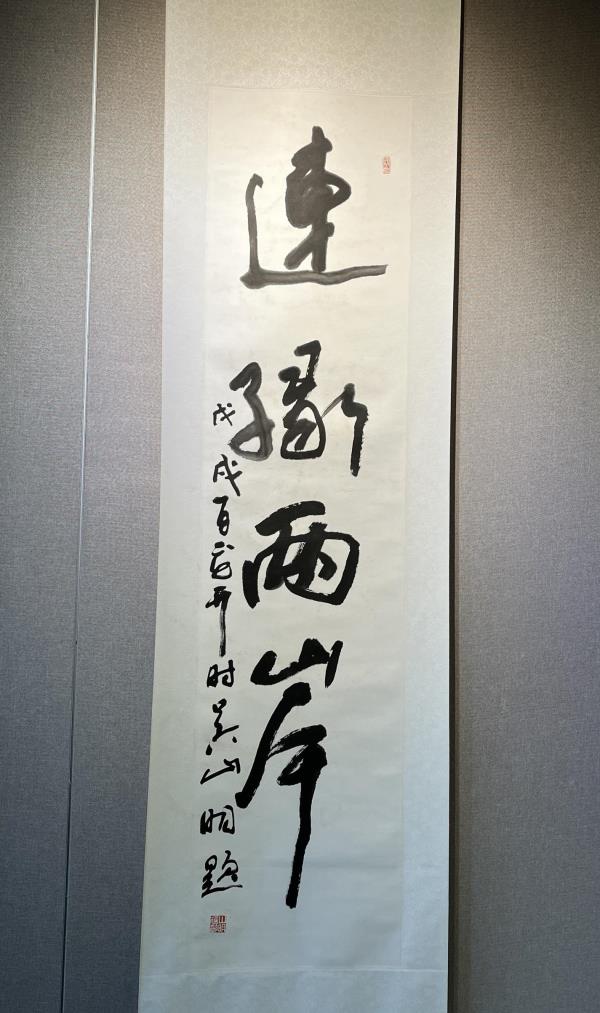 連緣兩岸
戊戌百花开时吴山明题